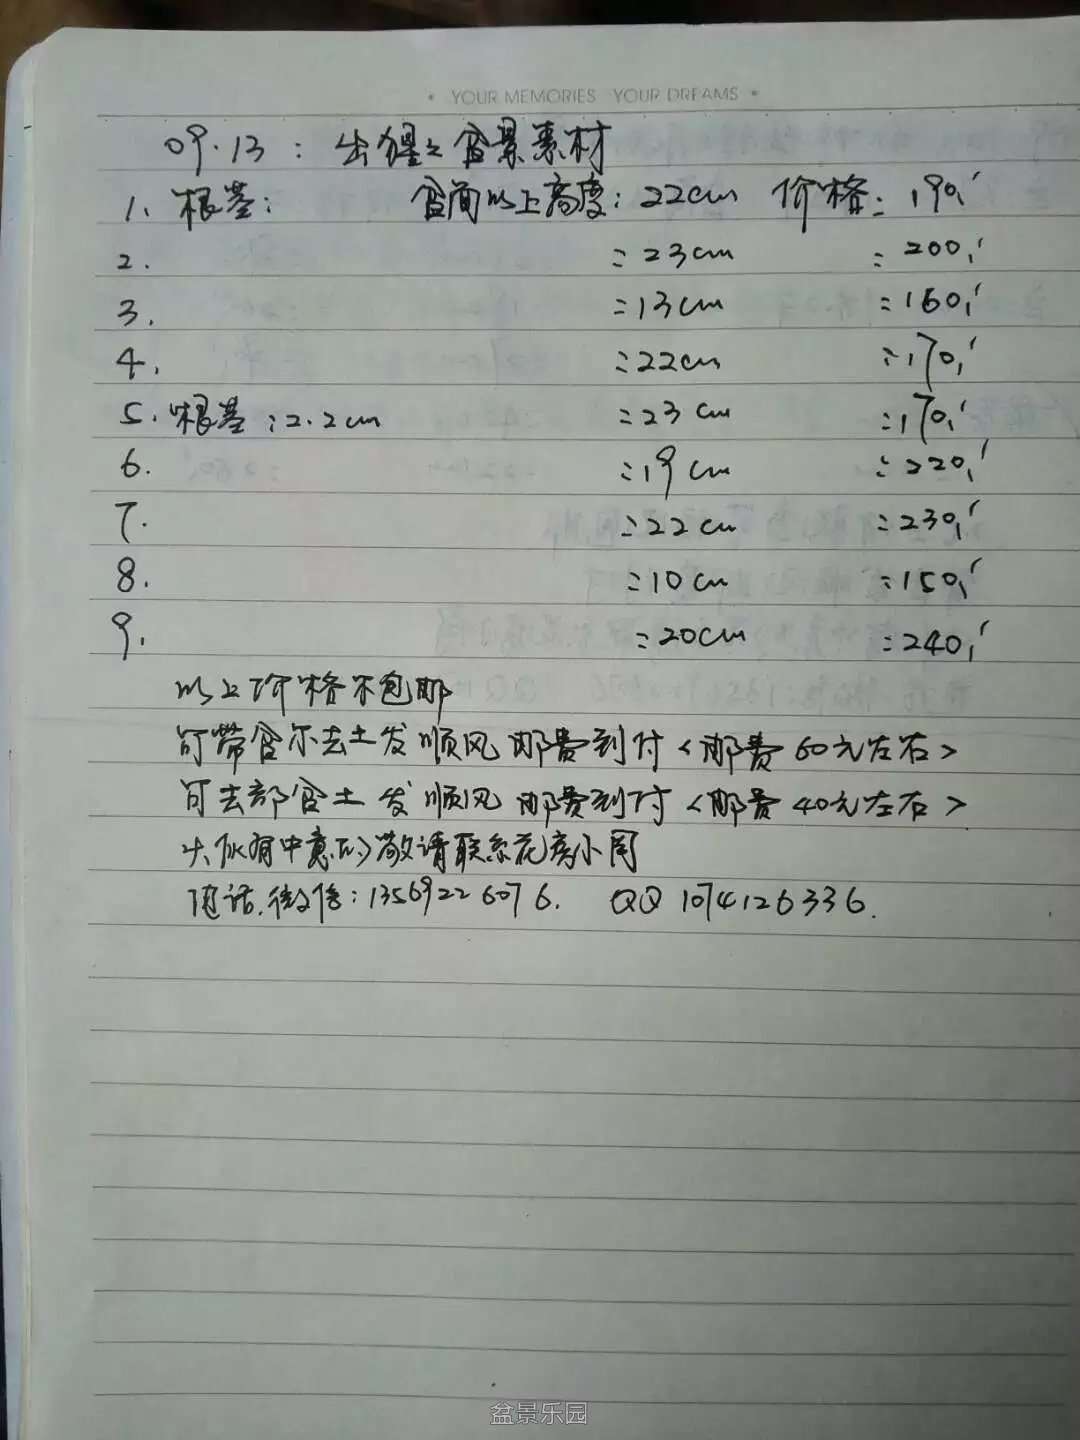 • YOUR MEMORIES YOUR DREAMS •
09.13: 出猩之盆景素材
1、根茎: 盆面以上高度:22cm 价格:190,
2. :23cm :200,
3. :13cm :160,
4. :22cm :170,
5.根茎:2.2cm :23cm :170,
6. :19cm :220,
7. :22cm :230,
8. :10cm :150,
9. :20cm :240,
以上价格不包邮
可带盆不去土发顺风邮费到付<邮费60元左右>
可去部盆土发顺风邮费到付<邮费40元左右>
大伙有中意的敬请联系花房小周
电话.微信:13569226076. QQ 1074126336.
盆景乐园